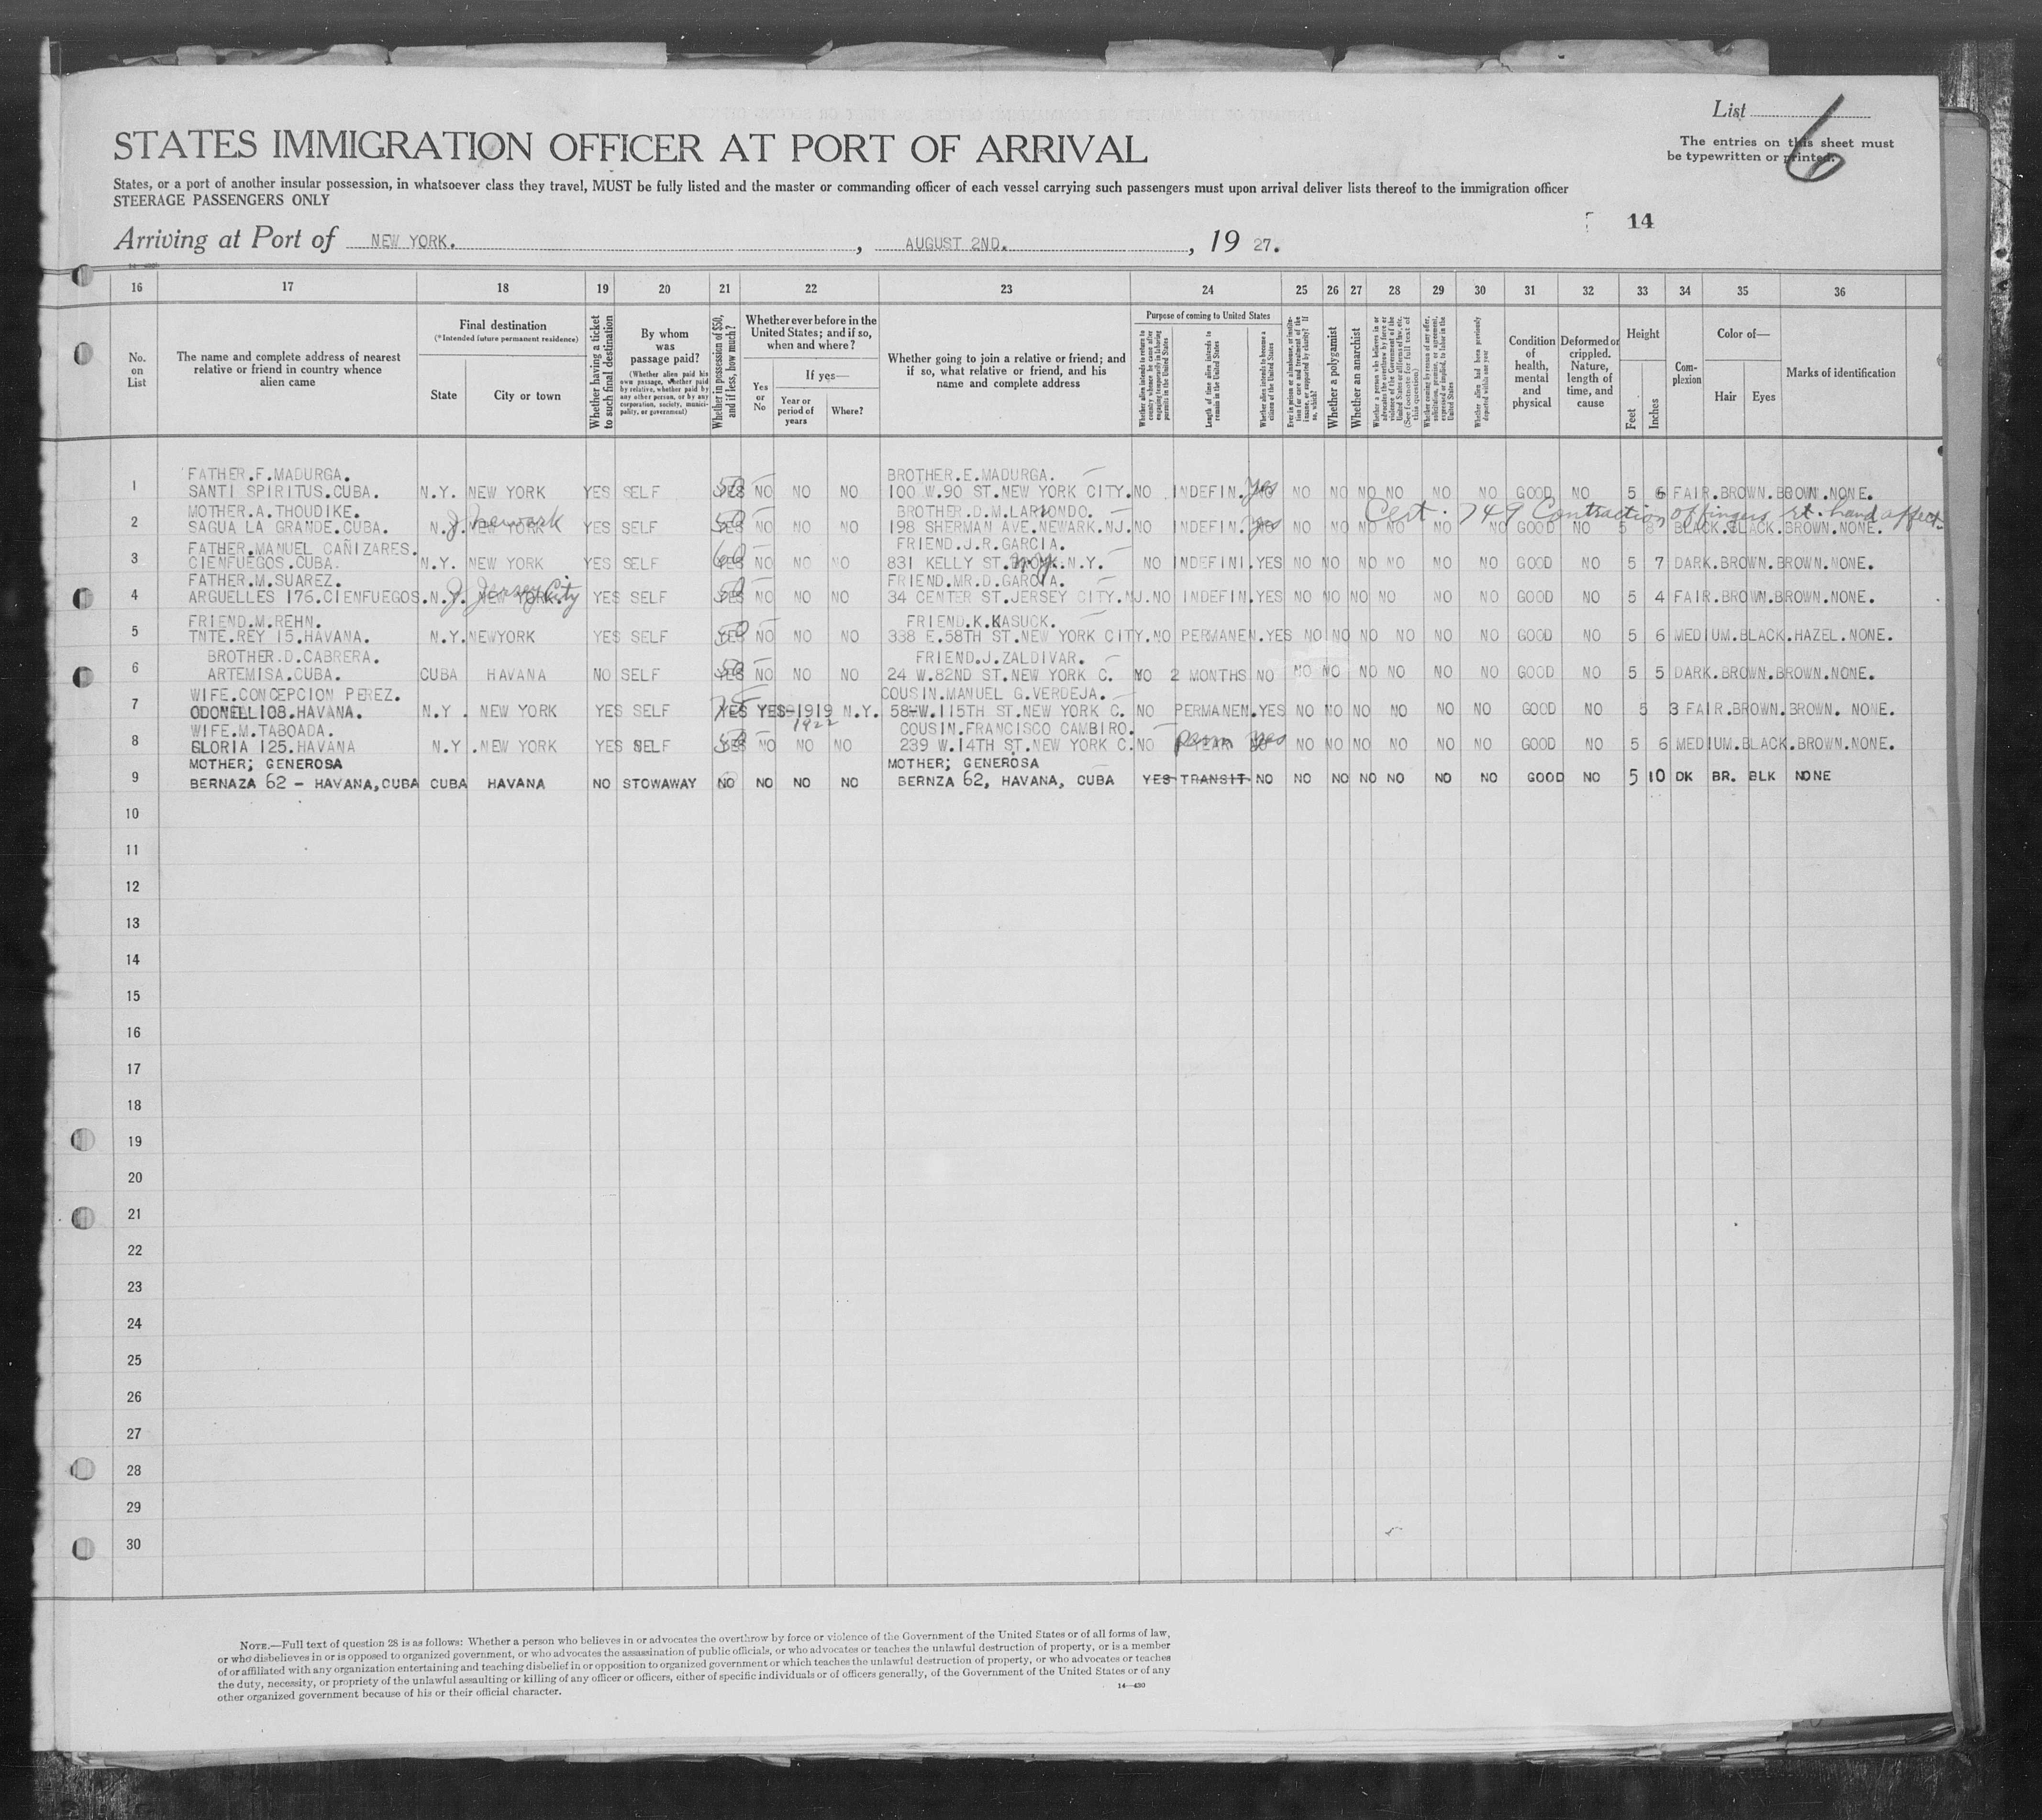 List 6
The entries on this sheet must
be typewritten or printed.
STATES IMMIGRATION OFFICER AT PORT OF ARRIVAL
States, or a port of another insular possession, in whatsoever class they travel, MUST be fully listed and the master or commanding officer of each vessel carrying such passengers must upon arrival deliver lists thereof to the immigration officer
STEERAGE PASSENGERS ONLY
14
Arriving at Port of NEW YORK. , AUGUST 2ND. , 19 27.
16 17 18 19 20 21 22 23 24 25 26 27 28 29 30 31 32 33 34 35 36
No. on List
The name and complete address of nearest relative or friend in country whence alien came
Final destination
(*Intended future permanent residence)
State
City or town
Whether having a ticket to such final destination
By whom was passage paid?
(Whether alien paid his own passage, whether paid by relative, whether paid by any other person, or by any corporation, society, municipality, or government)
Whether in possession of $50, and if less, how much?
Whether ever before in the United States; and if so, when and where?
Yes or No
If yes—
Year or period of years
Where?
Whether going to join a relative or friend; and if so, what relative or friend, and his name and complete address
Purpose of coming to United States
Whether alien intends to return to country whence he came after engaging temporarily in laboring pursuits in the United States
Length of time alien intends to remain in the United States
Whether alien intends to become a citizen of the United States
Whether a polygamist
Whether an anarchist
Condition of health, mental and physical
Deformed or crippled. Nature, length of time, and cause
Height
Feet
Inches
Complexion
Color of—
Hair
Eyes
Marks of identification
FATHER.F.MADURGA. BROTHER.E.MADURGA.
1 SANTI SPIRITUS.CUBA. N.Y. NEW YORK YES SELF 50 YES NO NO NO 100 W.90 ST.NEW YORK CITY. NO INDEFIN. yes NO NO NO NO NO NO NO GOOD NO 5 6 FAIR.BROWN.BROWN.NONE.
MOTHER.A.THOUDIKE. BROTHER.D.M.LARRONDO. Cert. 749 Contraction of fingers rt. hand affect.
2 SAGUA LA GRANDE.CUBA. N.J. Newark NEW YORK YES SELF 50 YES NO NO NO 198 SHERMAN AVE.NEWARK.NJ. NO INDEFIN. yes NO NO NO NO NO NO NO GOOD NO 5 BLACK.BLACK.BROWN.NONE.
FATHER.MANUEL CAÑIZARES. FRIEND.J.R.GARCIA.
3 CIENFUEGOS.CUBA. N.Y. NEW YORK YES SELF 60 YES NO NO NO 831 KELLY ST. N.Y. N.Y. NO INDEFINI.YES NO NO NO NO NO NO GOOD NO 5 7 DARK.BROWN.BROWN.NONE.
FATHER.M.SUAREZ. FRIEND.MR.D.GARCIA.
4 ARGUELLES 176.CIENFUEGOS. N.J. Jersey City NEW YORK. YES SELF 50 YES NO NO NO 34 CENTER ST.JERSEY CITY.NJ. NO INDEFIN.YES NO NO NO NO NO NO GOOD NO 5 4 FAIR.BROWN.BROWN.NONE.
FRIEND.M.REHN. FRIEND.K.KASUCK.
5 TNTE.REY 15.HAVANA. N.Y. NEWYORK YES SELF 50 YES NO NO NO 338 E.58TH ST.NEW YORK CITY. NO PERMANEN.YES NO NO NO NO NO NO GOOD NO 5 6 MEDIUM.BLACK.HAZEL.NONE.
BROTHER.D.CABRERA. FRIEND.J.ZALDIVAR.
6 ARTEMISA.CUBA. CUBA HAVANA NO SELF 50 YES NO NO NO 24 W.82ND ST.NEW YORK C. NO 2 MONTHS NO NO NO NO NO NO NO GOOD NO 5 5 DARK.BROWN.BROWN.NONE.
WIFE.CONCEPCION PEREZ. COUSIN.MANUEL G.VERDEJA.
7 ODONELL 108.HAVANA. N.Y. NEW YORK YES SELF 75 YES YES-1919 1922 N.Y. 58-W.115TH ST.NEW YORK C. NO PERMANEN.YES NO NO NO NO NO NO GOOD NO 5 3 FAIR.BROWN.BROWN. NONE.
WIFE.M.TABOADA. COUSIN.FRANCISCO CAMBIRO.
8 GLORIA 125.HAVANA N.Y. NEW YORK YES SELF 50 YES NO NO NO 239 W.14TH ST.NEW YORK C. NO perm yes NO NO NO NO NO NO GOOD NO 5 6 MEDIUM.BLACK.BROWN.NONE.
MOTHER; GENEROSA MOTHER; GENEROSA
9 BERNAZA 62 - HAVANA,CUBA CUBA HAVANA NO STOWAWAY NO NO NO NO BERNZA 62, HAVANA, CUBA YES TRANSIT NO NO NO NO NO NO NO GOOD NO 5 10 DK BR. BLK NONE
10
11
12
13
14
15
16
17
18
19
20
21
22
23
24
25
26
27
28
29
30
NOTE.—Full text of question 28 is as follows: Whether a person who believes in or advocates the overthrow by force or violence of the Government of the United States or of all forms of law,
or who disbelieves in or is opposed to organized government, or who advocates the assassination of public officials, or who advocates or teaches the unlawful destruction of property, or is a member
of or affiliated with any organization entertaining and teaching disbelief in or opposition to organized government or which teaches the unlawful destruction of property, or who advocates or teaches
the duty, necessity, or propriety of the unlawful assaulting or killing of any officer or officers, either of specific individuals or of officers generally, of the Government of the United States or of any
other organized government because of his or their official character.
14—430